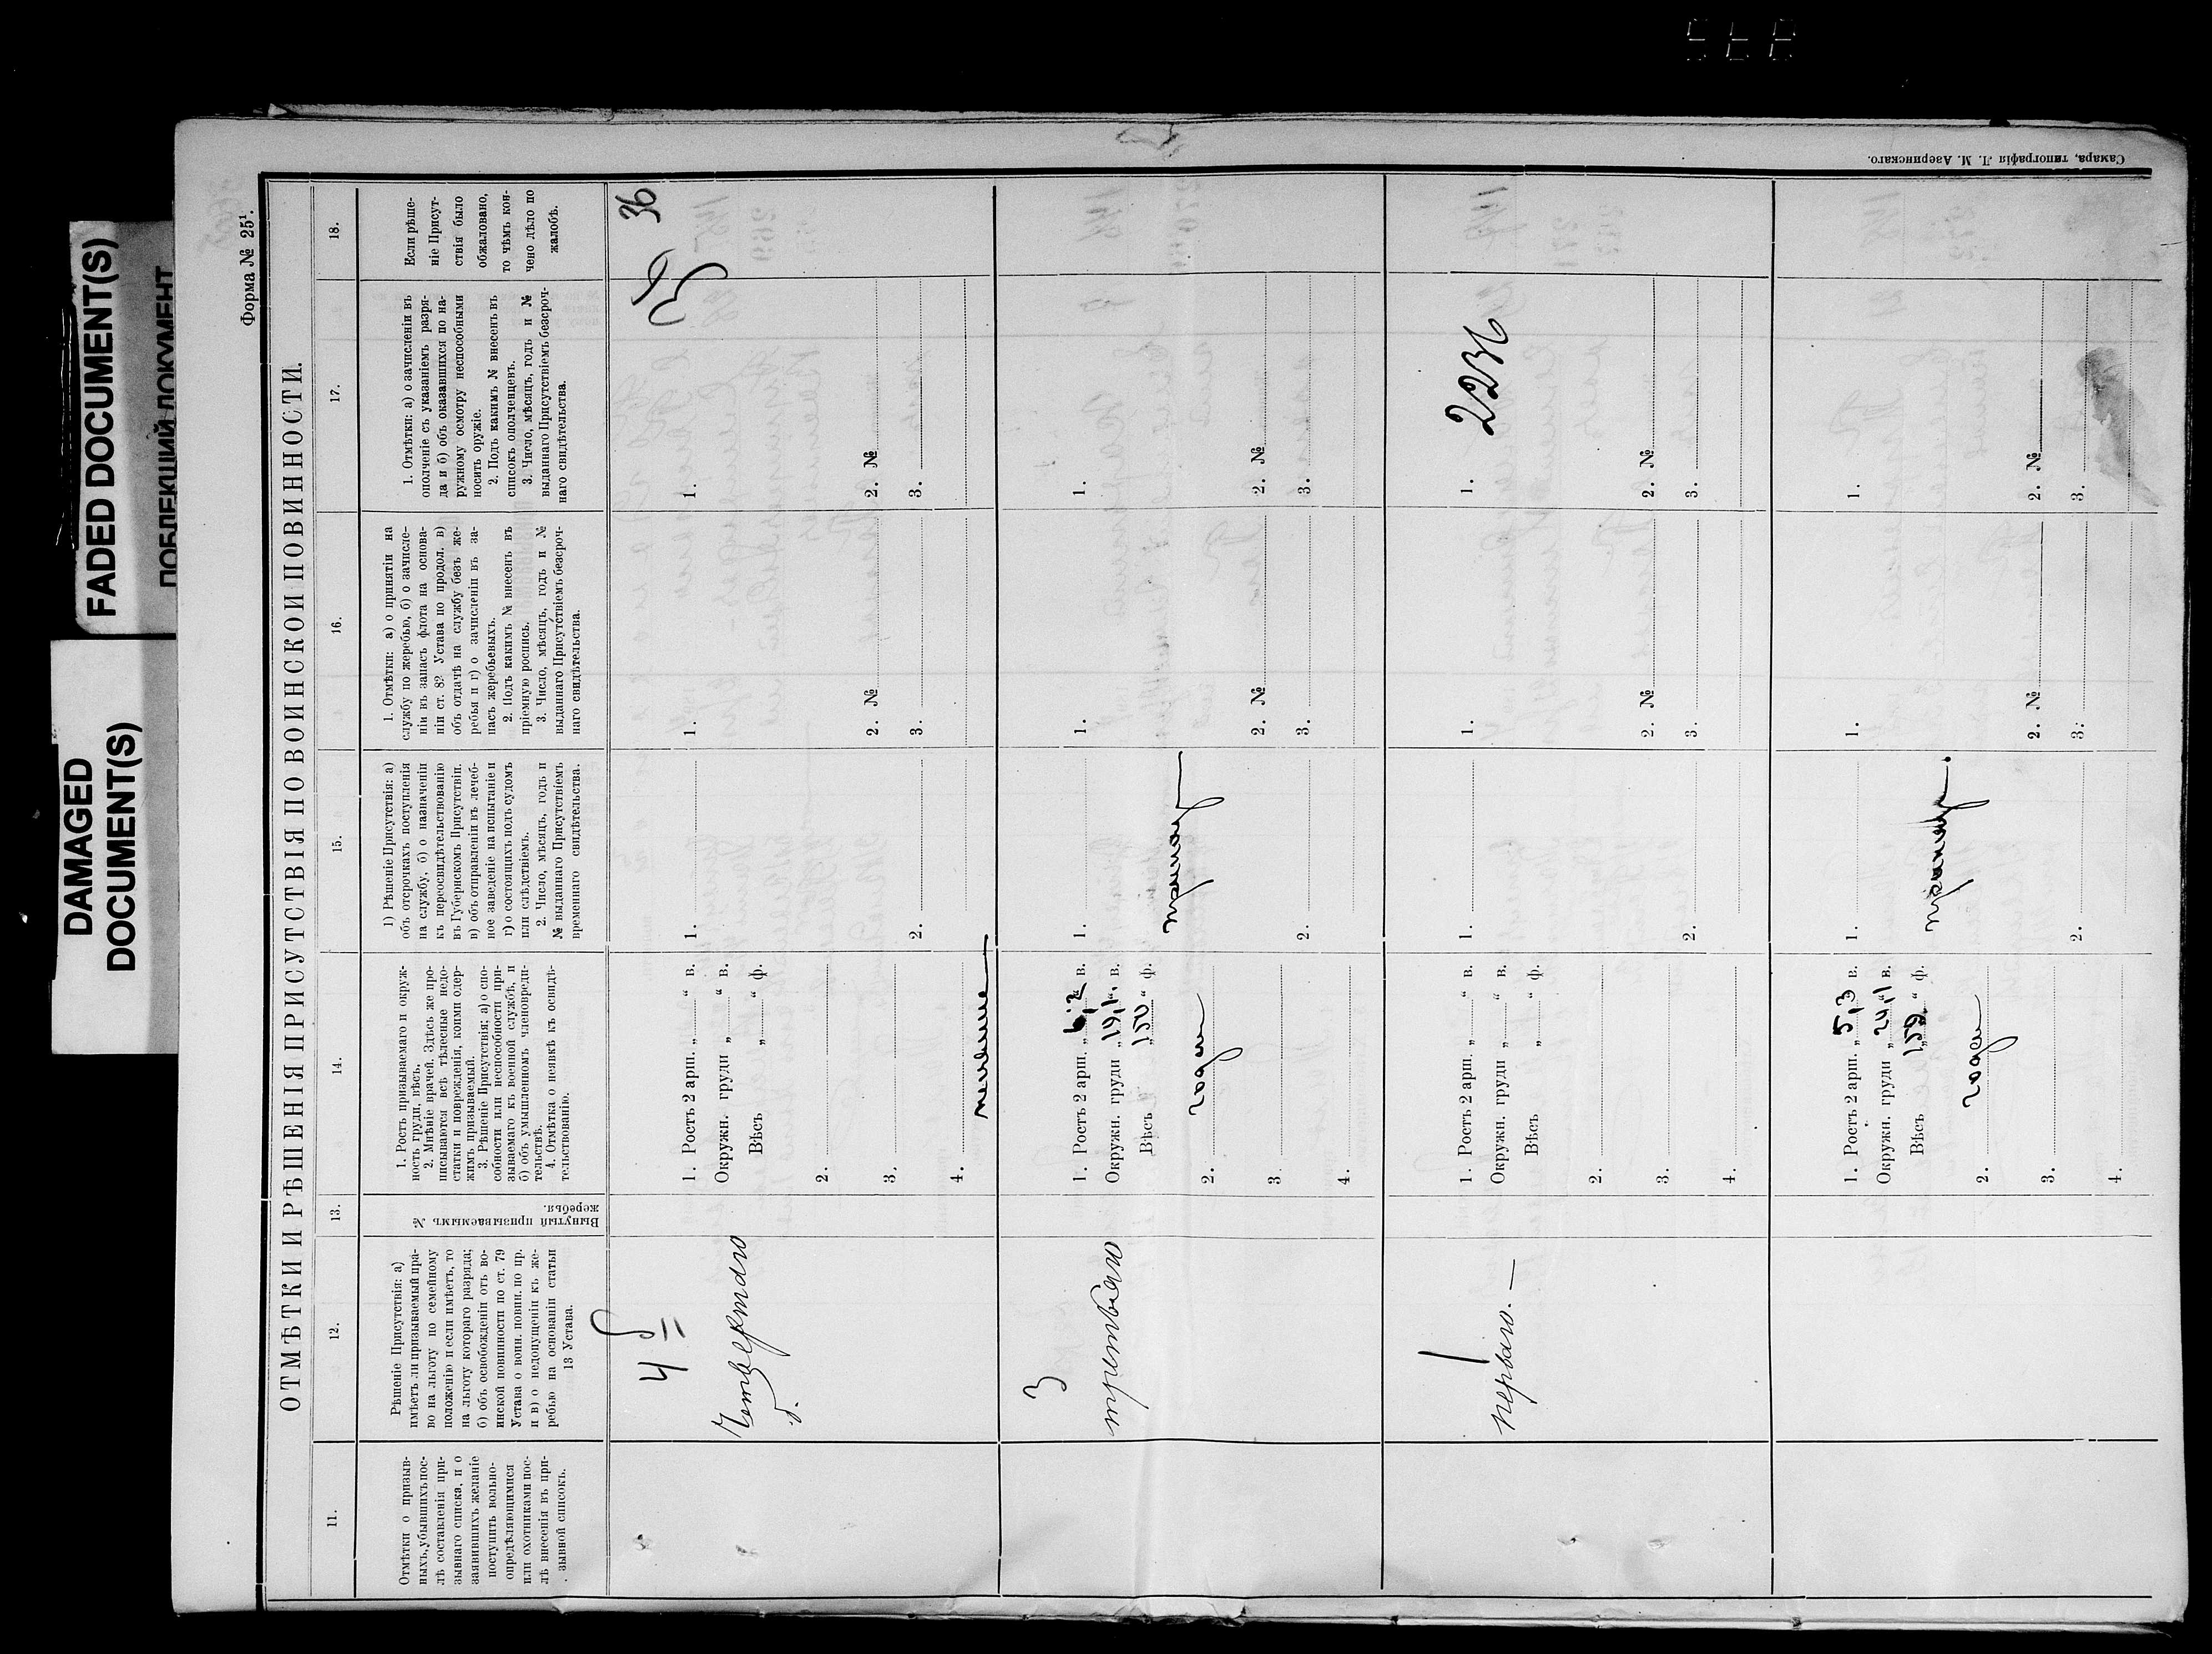 DAMAGED
DOCUMENT(S)
FADED DOCUMENT(S)
Форма № 25¹.
ОТМѢТКИ И РѢШЕНІЯ ПРИСУТСТВІЯ ПО ВОИНСКОЙ ПОВИННОСТИ.
11.
12.
13.
14.
15.
16.
17.
18.
Отмѣтки о призыв-
ныхъ, убывшихъ пос-
лѣ составленія при-
зывнаго списка, и о
заявившихъ желаніе
поступить вольно-
опредѣляющимися
или охотниками пос-
лѣ внесенія въ при-
зывной списокъ.
Рѣшеніе Присутствія: а)
имѣетъ ли призываемый пра-
во на льготу по семейному
положенію и если имѣетъ, то
на льготу котораго разряда;
б) объ освобожденіи отъ во-
инской повинности по ст. 79
Устава о воин. повин. по пр.
и в) о недопущеніи къ же-
ребью на основаніи статьи
13 Устава.
Вынутый призываемымъ №
жеребья.
1. Ростъ призываемаго и окруж-
ность груди, вѣсъ.
2. Мнѣніе врачей. Здѣсь же про-
писываются всѣ тѣлесные недо-
статки и поврежденія, коими одер-
жимъ призываемый.
3. Рѣшеніе Присутствія; а) о спо-
собности или неспособности при-
зываемаго къ военной службѣ, и
б) объ умышленномъ членовреди-
тельствѣ.
4. Отмѣтка о неявкѣ къ освидѣ-
тельствованію.
1) Рѣшеніе Присутствія: а)
объ отсрочкахъ поступленія
на службу, б) о назначеніи
къ переосвидѣтельствованію
въ Губернскомъ Присутствіи.
в) объ отправленіи въ лечеб-
ное заведеніе на испытаніе и
г) о состоящихъ подъ судомъ
или слѣдствіемъ.
2. Число, мѣсяцъ, годъ и
№ выданнаго Присутствіемъ
временнаго свидѣтельства.
1. Отмѣтки: а) о принятіи на
службу по жеребью, б) о зачисле-
ніи въ запасъ флота на основа-
ніи ст. 82 Устава по продол. в)
объ отдачѣ на службу безъ же-
ребья и г) о зачисленіи въ за-
пасъ жеребьевыхъ.
2. Подъ какимъ № внесенъ въ
пріемную роспись.
3. Число, мѣсяцъ, годъ и №
выданнаго Присутствіемъ безсроч-
наго свидѣтельства.
1. Отмѣтки: а) о зачисленіи въ
ополченіе съ указаніемъ разря-
да и б) объ оказавшихся по на-
ружному осмотру неспособными
носить оружіе.
2. Подъ какимъ № внесенъ въ
списокъ ополченцевъ.
3. Число, мѣсяцъ, годъ и №
выданнаго Присутствіемъ безсроч-
наго свидѣтельства.
Если рѣше-
ніе Присут-
ствія было
обжаловано,
то чѣмъ кон-
чено дѣло по
жалобѣ.
4
1. Ростъ 2 арш. „ “ в.
Окружн. груди „ “ в.
Вѣсъ „ “ ф.
2.
3.
4.
1.
2.
1.
2. №
3.
1.
2. №
3.
36
3
третьяго
1. Ростъ 2 арш. „ 6,2 “ в.
Окружн. груди „ 19,1 “ в.
Вѣсъ 1,50 “ ф.
2. годен
3.
4.
1.
2.
1.
2. №
3.
1.
2. №
3.
1
перваго. —
1. Ростъ 2 арш. „ “ в.
Окружн. груди „ “ в.
Вѣсъ „ “ ф.
2.
3.
4.
1.
2.
1.
2. №
3.
1. 2236
2. №
3.
1. Ростъ 2 арш. „ 5,3 в.
Окружн. груди „ 24,1 в.
Вѣсъ 1,59 “ ф.
2. годен
3.
4.
1.
2.
1.
2. №
3.
1.
2. №
3.
Самара, типографія Л. М. Азеринскаго.